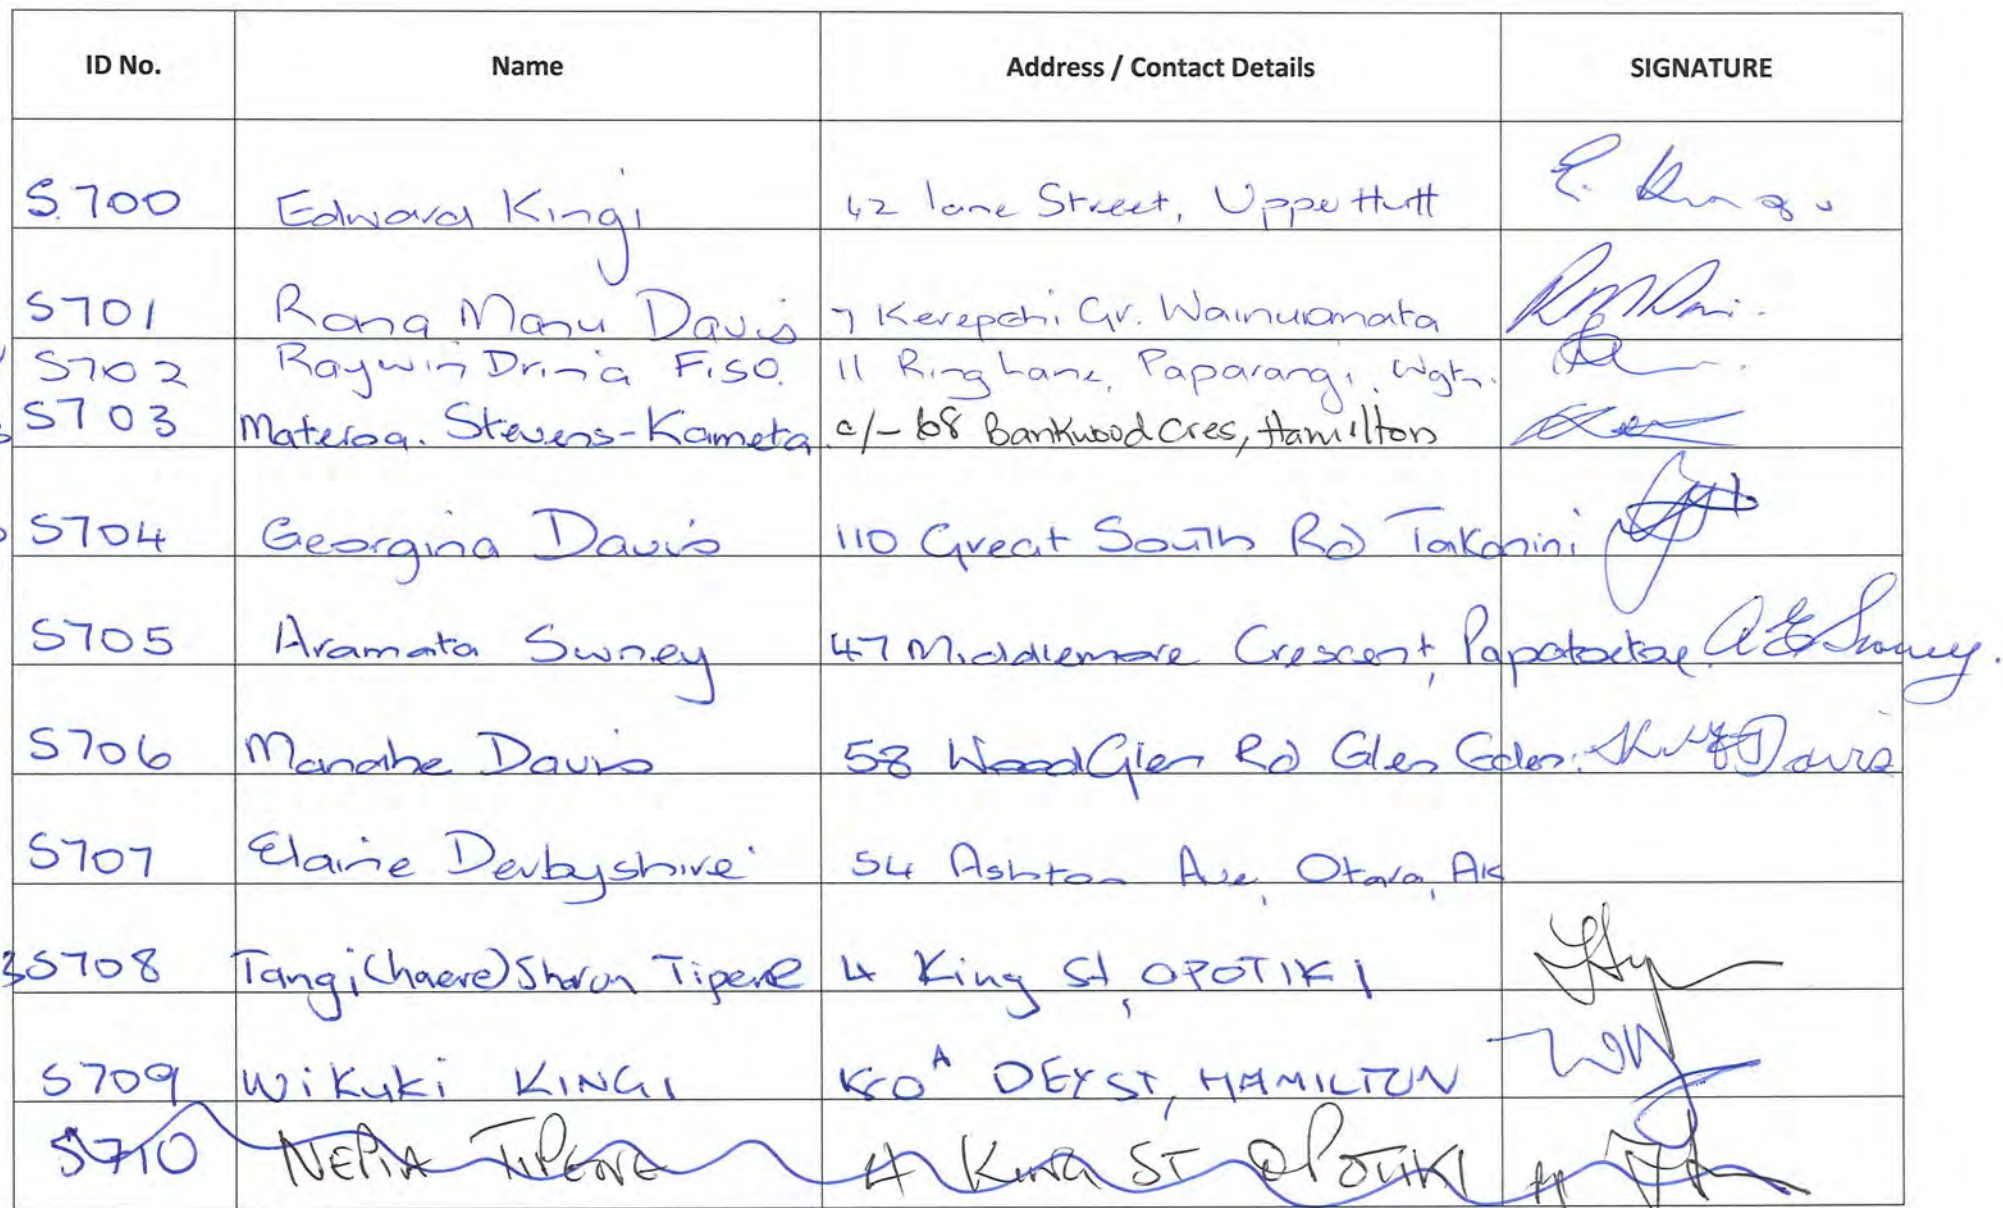 ID No. Name Address / Contact Details SIGNATURE
S.700 Edward Kingi 42 lane Street, Upper Hutt E. Kingi
S701 Rona Manu Davis 7 Kerepehi Gr. Wainuiomata
S702 Raywin Drina Fiso. 11 Ring Lane, Paparangi, Wgtn.
S703 Materoa. Stevens-Kameta. c/- 68 Bankwood Cres, Hamilton
S704 Georgina Davis 110 Great South Rd Takanini
S705 Aramata Swney 47 Middlemore Crescent, Papatoetoe A E Swney.
S706 Manahe Davis 58 WoodGlen Rd Glen Eden. Davis
S707 Elaine Derbyshire 54 Ashton Ave, Otara, AK
S708 Tangi(haere) Sharon Tipene 4 King St, OPOTIKI
S709 Wikuki KINGI A DEY ST, HAMILTON
S710 NEPIA TIPENE 4 KING ST OPOTIKI